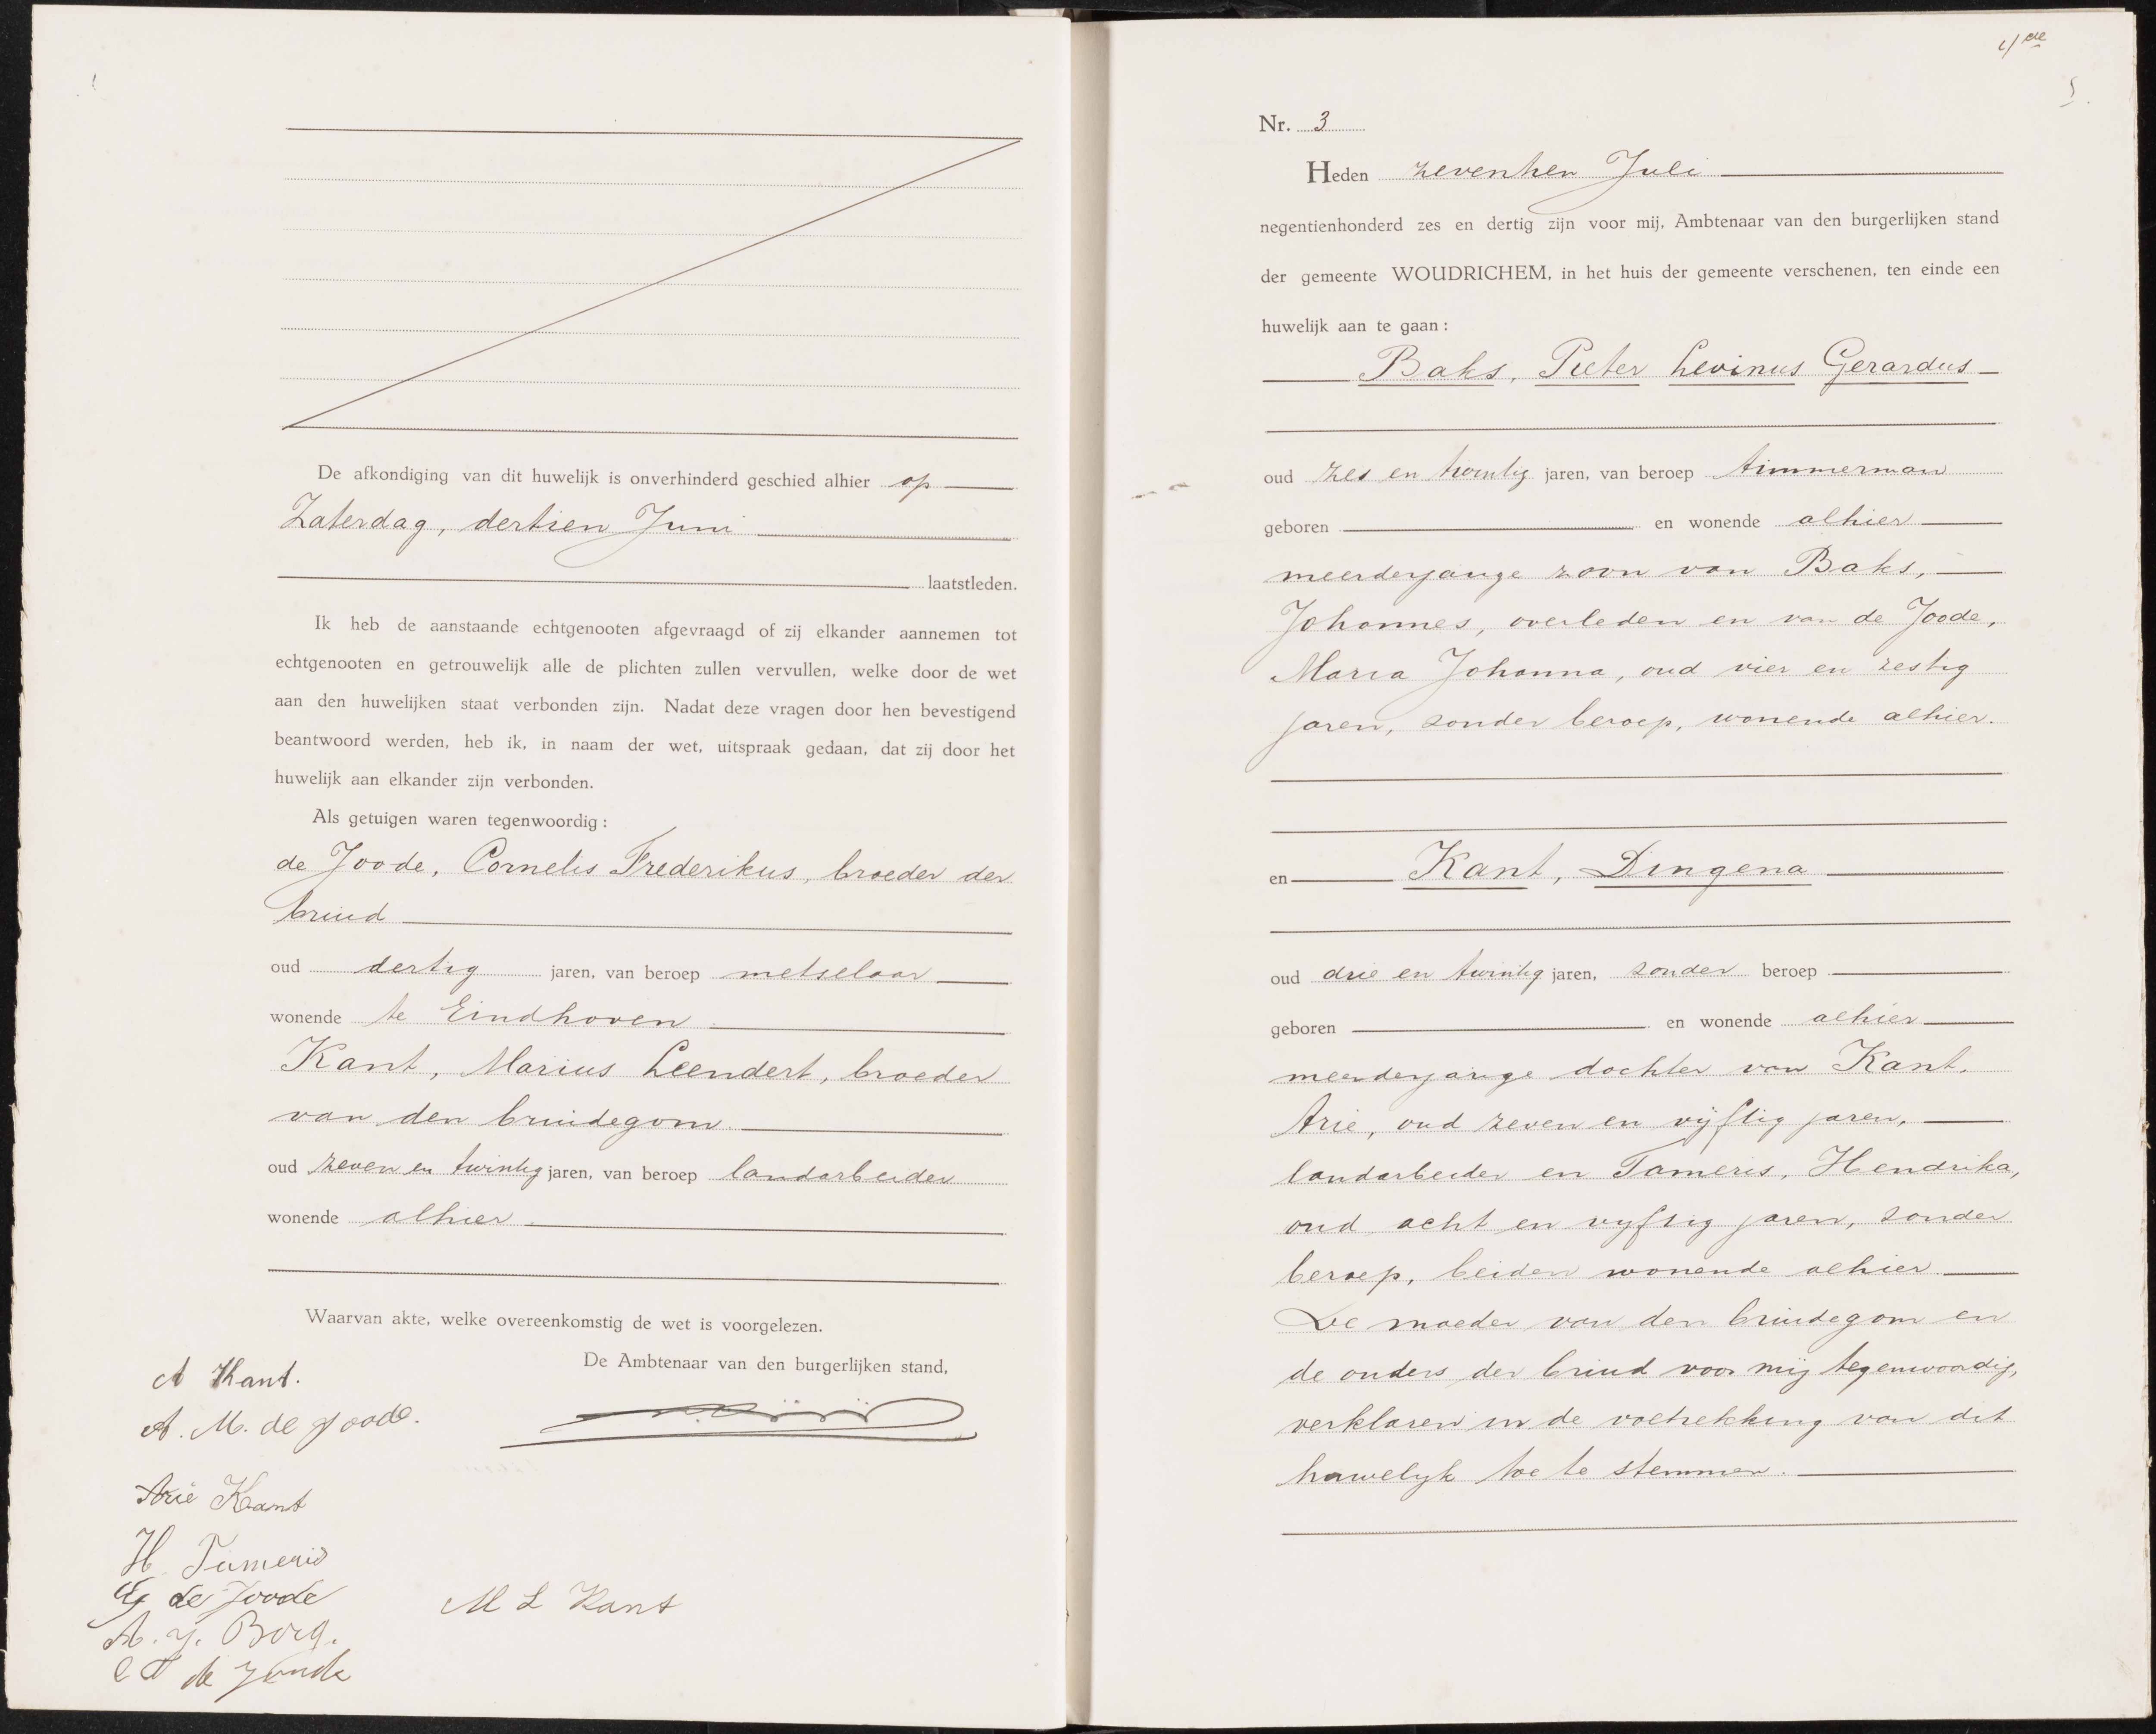 De afkondiging van dit huwelijk is onverhinderd geschied alhier op
Zaterdag, dertien Juni
laatstleden.
Ik heb de aanstaande echtgenooten afgevraagd of zij elkander aannemen tot
echtgenooten en getrouwelijk alle de plichten zullen vervullen, welke door de wet
aan den huwelijken staat verbonden zijn. Nadat deze vragen door hen bevestigend
beantwoord werden, heb ik, in naam der wet, uitspraak gedaan, dat zij door het
huwelijk aan elkander zijn verbonden.
Als getuigen waren tegenwoordig:
de Joode, Cornelis Frederikus, broeder der
bruid
oud dertig jaren, van beroep metselaar
wonende te Eindhoven
Kant, Marius Leendert, broeder
van den bruidegom
oud zeven en twintig jaren, van beroep landarbeider
wonende alhier
Waarvan akte, welke overeenkomstig de wet is voorgelezen.
De Ambtenaar van den burgerlijken stand,
A Kant.
A. M. de Joode.
Arie Kant
H. Tameris
de Joode
M L Kant
A. J. Borg.
de Joode
4de
5.
Nr. 3
Heden zeventien Juli
negentienhonderd zes en dertig zijn voor mij, Ambtenaar van den burgerlijken stand
der gemeente WOUDRICHEM, in het huis der gemeente verschenen, ten einde een
huwelijk aan te gaan:
Baks, Pieter Levinus Gerardus
oud zes en twintig jaren, van beroep timmerman
geboren en wonende alhier
meerderjarige zoon van Baks,
Johannes, overleden en van de Joode,
Maria Johanna, oud vier en zestig
jaren, zonder beroep, wonende alhier.
en Kant, Dingena
oud drie en twintig jaren, zonder beroep
geboren en wonende alhier
meerderjarige dochter van Kant,
Arie, oud zeven en vijftig jaren,
landarbeider en Tameris, Hendrika,
oud acht en vijftig jaren, zonder
beroep, beiden wonende alhier.
De moeder van den bruidegom en
de ouders der bruid voor mij tegenwoordig,
verklaren in de voltrekking van dit
huwelijk toe te stemmen.